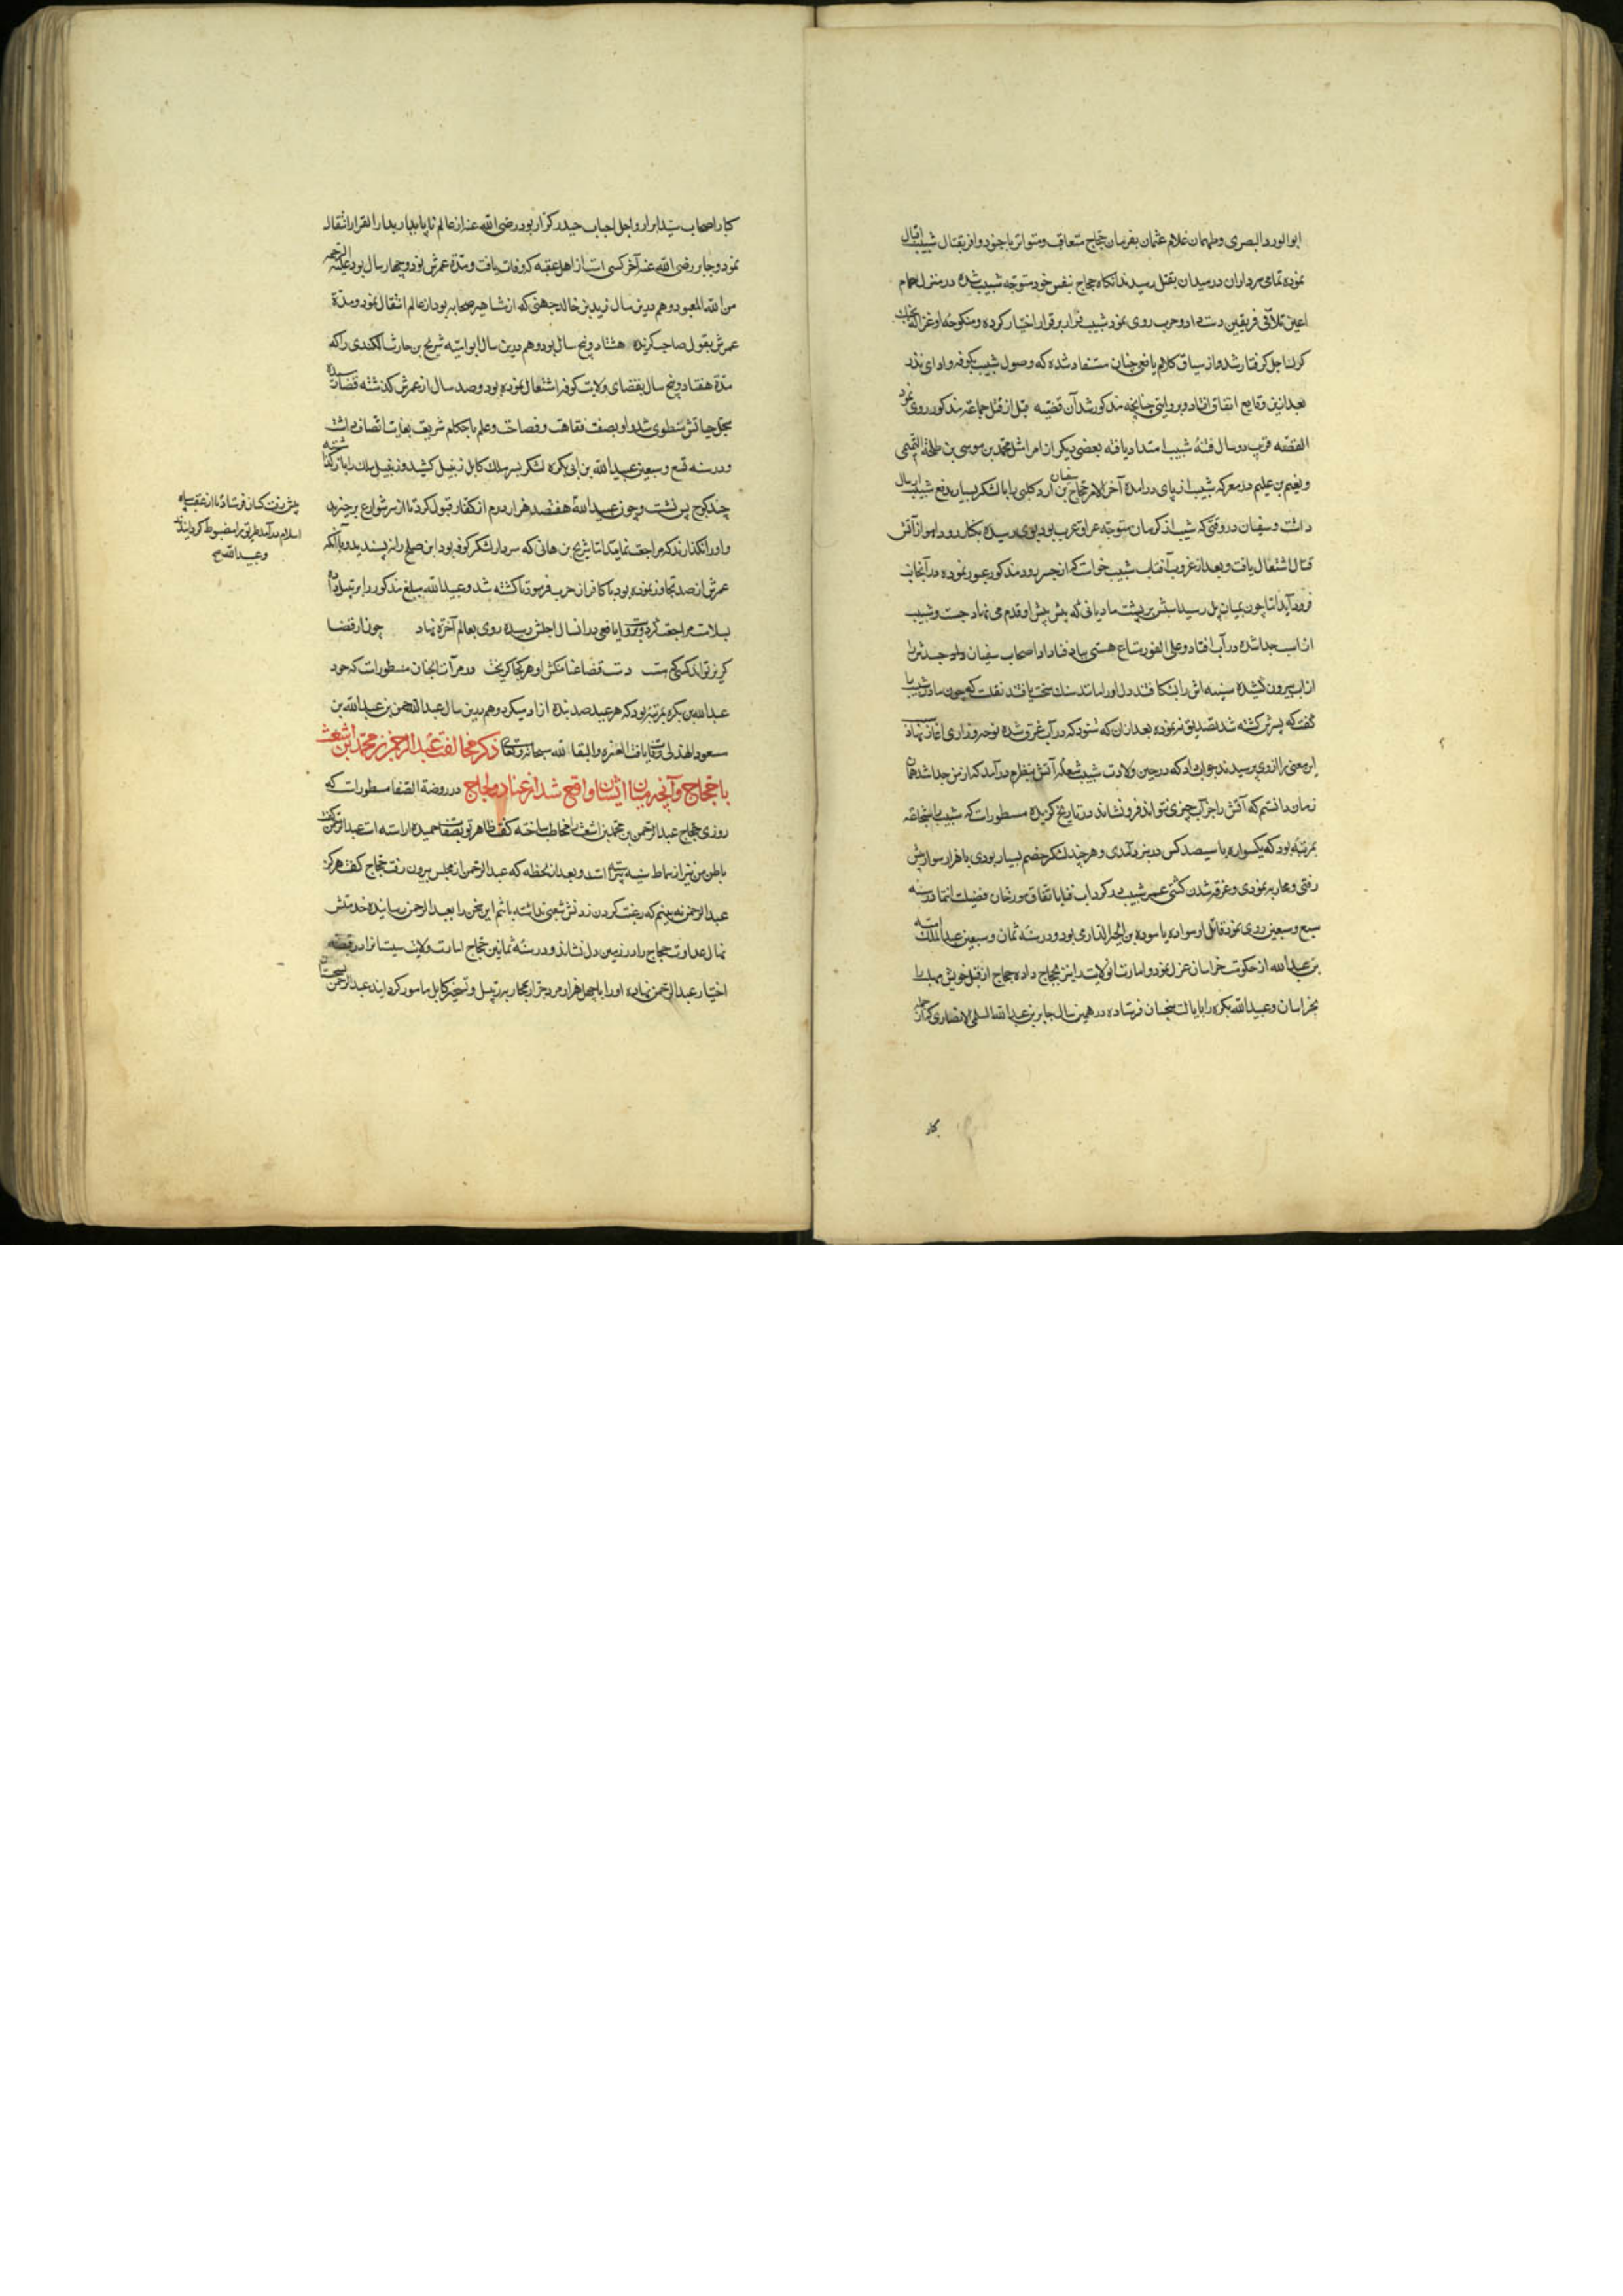 ابوالورد البصری وطهمان غلام عثمان بفرمان حجاج متعاقب ومتواتر باجنود وافر بقتال شبیب اقبال
نموده تمامی سرداران در میدان بقتل رسیدند آنکاه حجاج بنفس خود متوجه شبیب شده در منزل حمام
اعین تلاقی فریقین دست داد و حرب روی نمود شبیب فرار بر قرار اختیار کرده و منکوحهٔ او غزاله بچنک
کرکان اجل کرفتار شد و از سیاق کلام یافعی چنان مستفاد شده که وصول شبیب بکوفه و ادای نذر
بعد ازین وقایع اتفاق افتاد و بروایتی چنانچه مذکور شد آن قضیه قبل از قتل جماعة مذکور روی نمود
القصه قرب دو سال فتنهٔ شبیب امتداد یافته بعضی دیکر از امرا مثل محمد بن موسی بن طلحة التیمی
و نعیم بن علیم در معرکه شبیب از پای درآمدند آخر الامر حجاج سفیان بن ارد کلبی را با لشکر بسیار بدفع شبیب ارسال
داشت و سفیان در وقتی که شبیب از کرمان متوجه عراق عرب بود بوی رسیده بکنار رود اهواز آتش
قتال اشتعال یافت و بعد از غروب آفتاب شبیب خواست که از جسر رود مذکور عبور نموده در آنجانب
فرود آید اما چون بمیان پل رسید اسبش بر پشت مادیانی که پیش پیش او قدم می نهاد جست و شبیب
از اسب جدا شده در آب افتاد و علی الفور متاع هستی بباد فنا داد اصحاب سفیان جسدش را
از آب بیرون کشیده سینه اش را بشکافتند دل او را مانند سنک سخت یافتند نقلست که چون مادر شبیب را
کفتند که پسرش کشته شد تصدیق ننموده بعد ازان که شنود که در آب غرق شده نوحه و زاری آغاز نهاد
این معنی را ازوی پرسیدند جواب داد که در حین ولادت شبیب شعلهٔ آتش بنظرم درآمد که از من جدا شد همان
زمان دانستم که آتش را جز آب چیزی نتواند فرو نشاند در تاریخ کزیده مسطورست که شبیب را شجاعة
بمرتبهٔ بود که یکسواره با سیصد کس در نبرد آمدی و هرچند لشکر خصم بسیار بودی با هزار سوار پیش
رفتی و محاربه نمودی و غرق شدن کشتی عمر شبیب در کرداب فنا باتفاق مورخان فضیلت انتما در سنه
سبع و سبعین روی نمود قاتل او سواده یا سوده بن الحر الدارمی بود و در سنهٔ ثمان و سبعین عبدالملک امیه
بن عبدالله از حکومت خراسان عزل نمود و امارت آنولایت را نیز بحجاج داده حجاج از قبل خویش مهلب را
بخراسان و عبیدالله بکره را بایالت سجستان فرستاد و در همین سال جابر بن عبدالله السلمی الانصاری که از جمله
کبار
کبار اصحاب سید ابرار و اجل احباب حیدر کرار بود رضی الله عنه از عالم ناپایدار بدار القرار انتقال
نمود و جابر رضی الله عنه آخر کسی است از اهل عقبه که وفات یافت و مدة عمرش نود و چهار سال بود علیه الرحمه
من الله المعبود و هم درین سال زید بن خالد جهنی که از مشاهیر صحابه بود از عالم انتقال نمود و مدة
عمرش بقول صاحب کزیده هشتاد و پنج سال بود و هم درین سال ابو امیه شریح بن حارث الکندی را که
مدة هفتاد و پنج سال بقضای ولایت کوفه اشتغال نموده بود و صد سال از عمرش کذشته قضا رسیده
سجل حیاتش منطوی شد و او بصفت نقاهت و فصاحت و علم باحکام شریعت بغایت اتصاف داشت
و در سنه تسع و سبعین عبیدالله بن ابی بکره لشکر بسر ملک کابل زنبیل کشید و زنبیل ملک را باز کذاشته
چند کوچ پس نشست و چون عبیدالله هفتصد هزار درم از کفار قبول کرد تا از سر شوارع برخیزند
و او را نکذارند که مراجعت نماید اما شریح بن هانی که سردار لشکر کوفه بود این صلح را نپسندید و با آنکه
عمرش از صد تجاوز نموده بود با کافران حرب فرمود تا کشته شد و عبیدالله مبلغ مذکور را برتبیل داده
بسلامت مراجعت کرد و بروایت یافعی در انسال اجلش رسیده روی بعالم آخرة نهاد چون از قضا
کریز تواند که کرد هست دست قضا عنان کش او هر کجا کریخت و در مرآت الجنان مسطورست که جود
عبدالله بن بکره بمرتبهٔ بود که هر عید صد بنده آزاد میکرد و هم درین سال عبدالرحمن بن عبدالله بن
مسعود الهذلی وفات یافت العزه والبقا لله سبحانه وتعالی ذکر مخالفت عبد الرحمن بن محمد بن اشعث
با حجاج و آنچه میان ایشان واقع شد از عناد و لجاج در روضة الصفا مسطورست که
روزی حجاج عبدالرحمن بن محمد بن اشعث را مخاطب ساخته کفت ظاهر تو بصفات حمیده آراسته است عبدالرحمن کفت
باطن من نیز از نماط سنیه پیراسته است و بعد از لحظه که عبدالرحمن از مجلس بیرون رفت حجاج کفت هرکز
عبدالرحمن نه بینم که رغبت کردن زدنش نداشته باشم این سخن را بعبدالرحمن رسانیده خدمتش
نهال عداوت حجاج را در زمین دل نشاند و در سنهٔ ثمانین حجاج امارت ولایت سیستان را در قبضه
اختیار عبدالرحمن نهاده او را با چهل هزار مرد جرار بمحاربه رتبیل و تسخیر کابل مامور کردانید عبدالرحمن بسجستان
پیش رفت کسان فرستاد تا از عقب سپاه
اسلام درآمده طریق را مضبوط کردانیدند
و عبیدالله